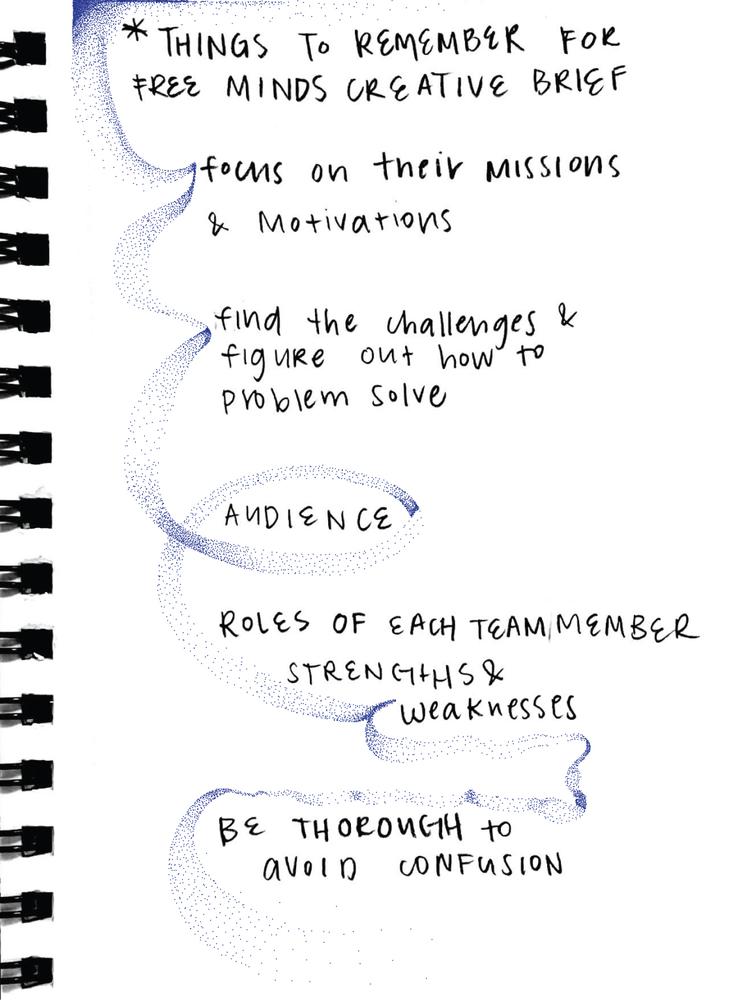 * THINGS TO REMEMBER FOR
FREE MINDS CREATIVE BRIEF
focus on their MISSIONS
& Motivations
find the challenges &
figure out how to
problem solve
AUDIENCE
ROLES OF EACH TEAM MEMBER
STRENGTHS &
weaknesses
BE THOROUGH to
avoid CONFUSION